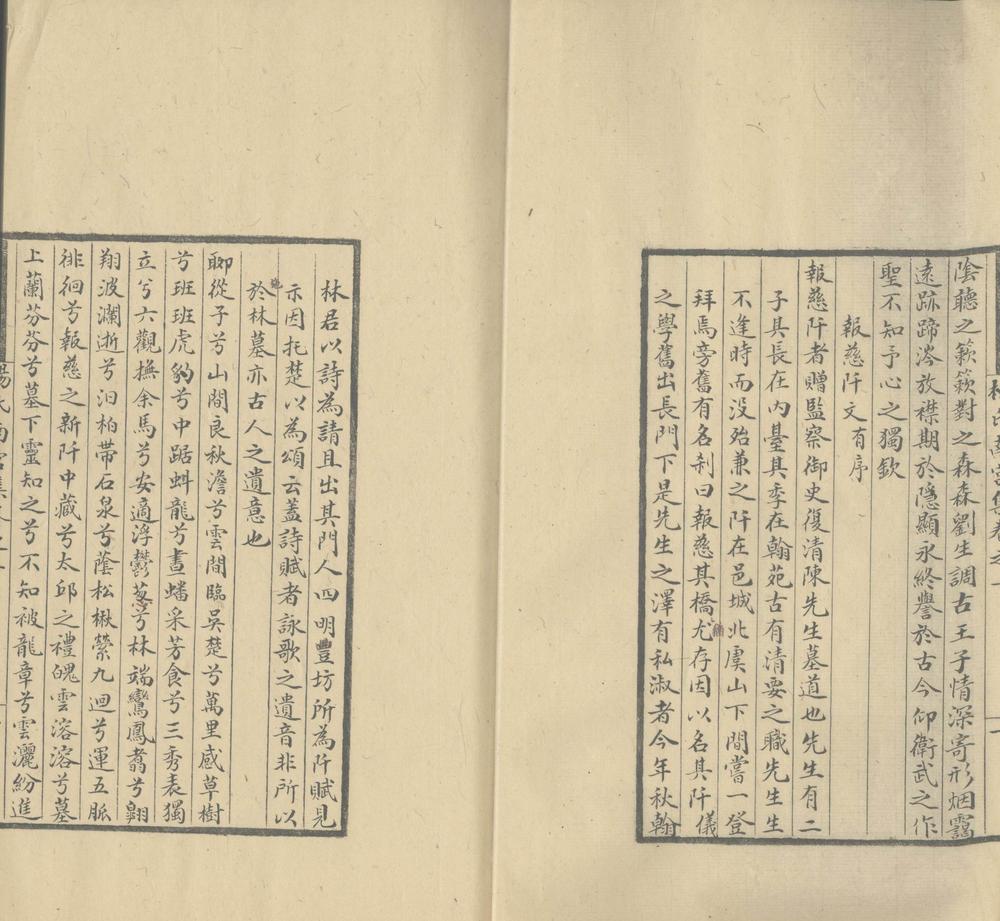 陰聽之簌簌對之森森劉生調古王子情深寄形烟靄
遠跡蹄涔放襟期於隱顯永終譽於古今仰衛武之作
聖不知予心之獨欽
報慈阡文有序
報慈阡者贈監察御史復清陳先生墓道也先生有二
子其長在内臺其季在翰苑古有清要之職先生生
不逢時而没殆兼之阡在邑城北虞山下間嘗一登
拜焉旁舊有名刹曰報慈其橋尤存因以名其阡儀
之學舊出長門下是先生之澤有私淑者今年秋翰
林君以詩為請且出其門人四明豐坊所為阡賦見
示因托楚以為頌云蓋詩賦者詠歌之遺音非所以
於林墓亦古人之遺意也
聊從子兮山間良秋澹兮雲間臨吳楚兮萬里感草樹
兮班班虎豹兮中踞蚪龍兮晝蟠采芳食兮三秀表獨
立兮六觀撫余馬兮安適浮鬱葱兮林端鸞鳳翥兮翺
翔波瀾逝兮汨柏帶石泉兮蔭松楸縈九迴兮運五脈
徘徊兮報慈之新阡中藏兮太邱之禮魄雲溶溶兮墓
上蘭芬芬兮墓下靈知之兮不知被龍章兮雲灑紛進